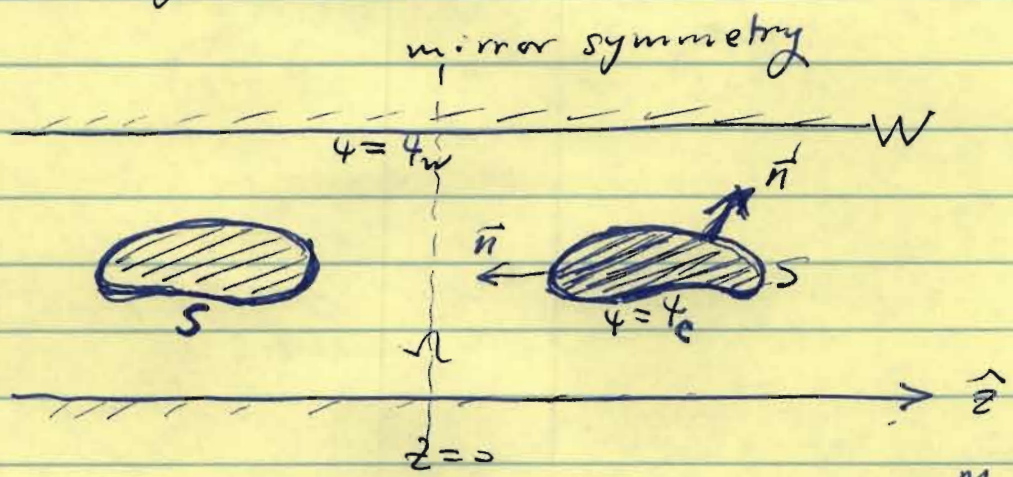 mirror symmetry
W
ψ = ψ_w
n⃗
n⃗
S
S
ψ = ψ_c
Ω
ẑ
z=0